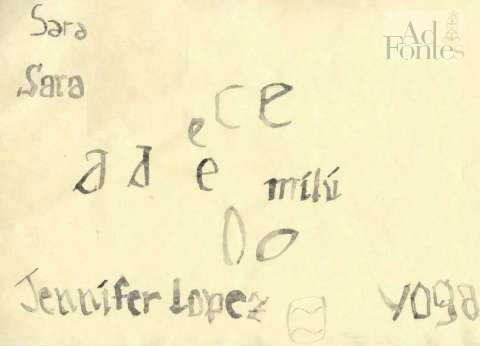 Sara
Ad
Fontes
Sara
c e
e
a a e milú
o o
Jennifer Lopez yoga